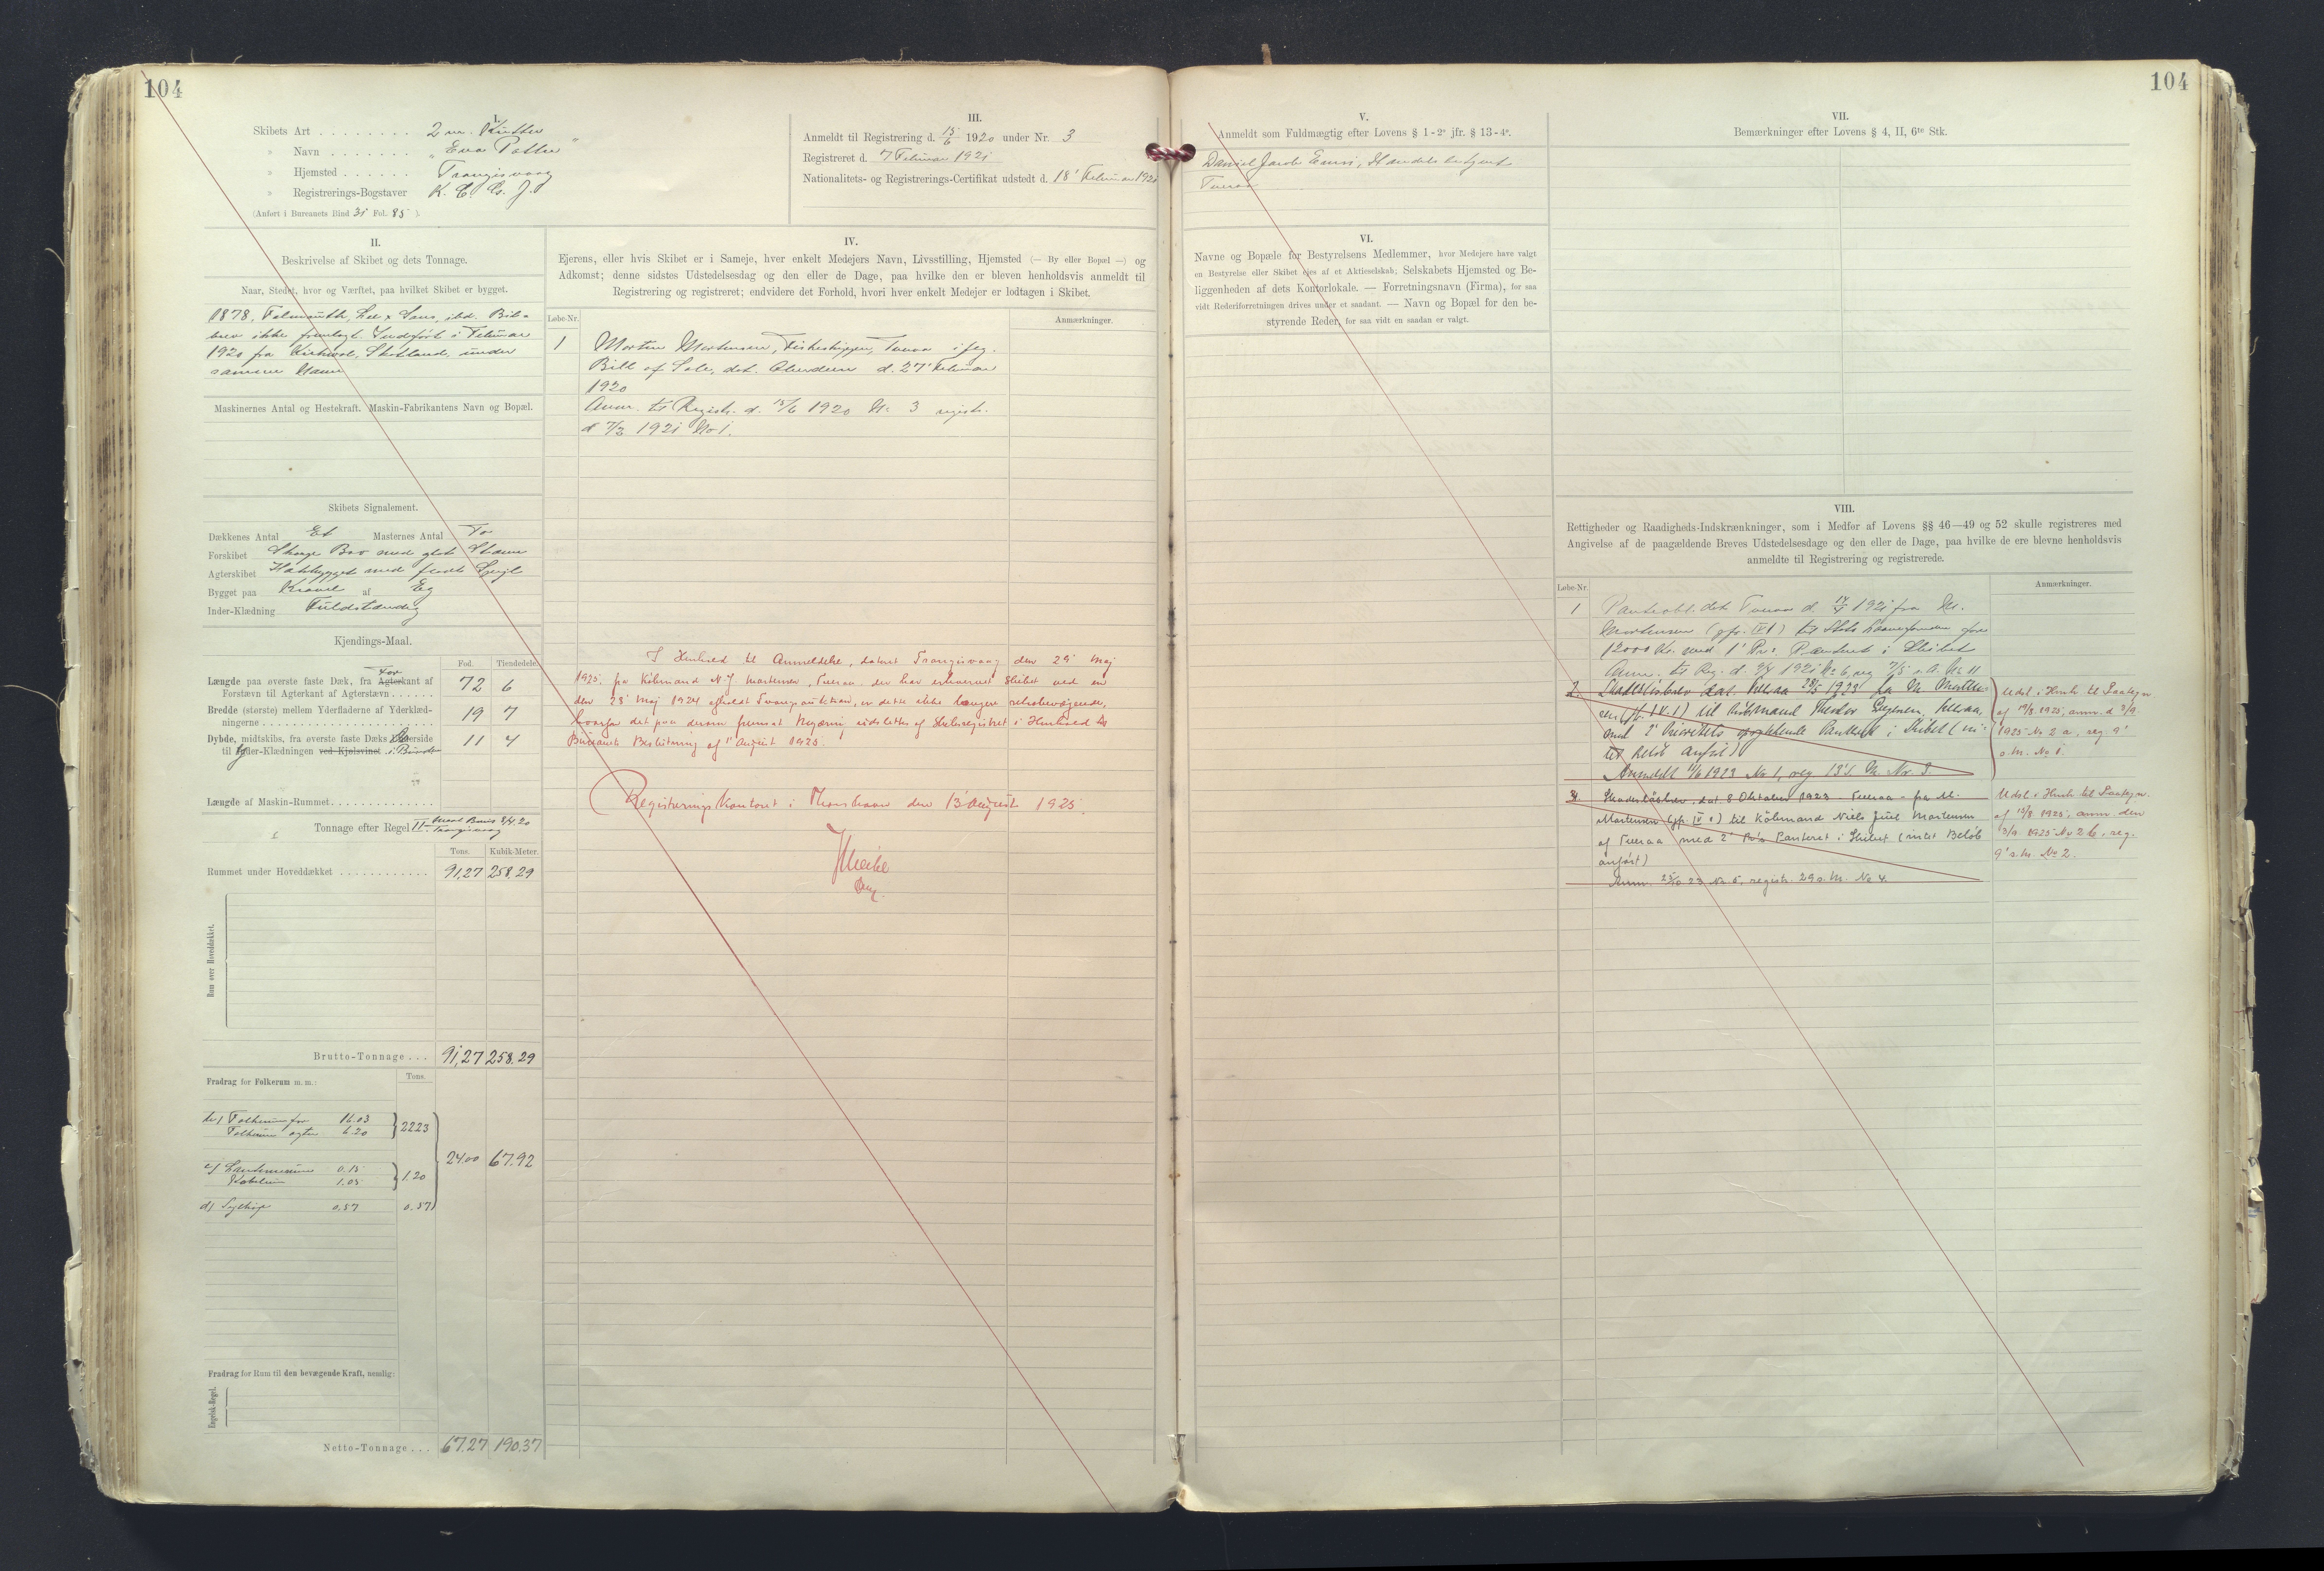 104
I.
Skibets Art . . . . . . . . 2 m. Kutter
" Navn . . . . . . . "Eva Potter"
" Hjemsted . . . . . . Trangisvaag
" Registrerings-Bogstaver K. C. G. J.
(Anført i Bureauets Bind 31 Fol. 85 ).
III.
Anmeldt til Registrering d. 15/6 1920 under Nr. 3
Registreret d. 7 Februar 1921
Nationalitets- og Registrerings-Certifikat udstedt d. 18' Februar 1921
II.
Beskrivelse af Skibet og dets Tonnage.
Naar, Stedet, hvor og Værftet, paa hvilket Skibet er bygget.
1878, Falmouth, Lee & Sons, ibd. Bil-
brev ikke fremlagt. Indført i Februar
1920 fra Kirkwal, Skotland, under
samme Navn
Maskinernes Antal og Hestekraft. Maskin-Fabrikantens Navn og Bopæl.
Skibets Signalement.
Dækkenes Antal Et Masternes Antal To
Forskibet Skarp Bov med glat Stævn
Agterskibet Hækbygget med fladt Spejl
Bygget paa Kravel af Eg
Inder-Klædning Fuldstændig
Kjendings-Maal.
Fod. Tiendedele.
Længde paa øverste faste Dæk, fra Agterkant af For
Forstævn til Agterkant af Agterstævn . . . . . . 72 6
Bredde (største) mellem Yderfladerne af Yderklæd-
ningerne . . . . . . . . . . . . . 19 7
Dybde, midtskibs, fra øverste faste Dæks Overside
til Yder-Klædningen ved Kjølsvinet i Bunden 11 4
Længde af Maskin-Rummet . . . . . . . . . . . . .
Tonnage efter Regel II. Maal Bevis 8/4 20 Trangisvaag
Tons. Kubik-Meter.
Rummet under Hoveddækket . . . . . . . . . . . . 91,27 258.29
Rum over Hoveddækket.
Brutto-Tonnage . . . 91,27 258.29
Fradrag for Folkerum m. m.: Tons.
Folkerum for 16.03
Folkerum agter 6.20 } 22.23
24.00 67.92
0.15
1.05 } 1.20
d) Sejlkøje 0.57 0.57
Fradrag for Rum til den bevægende Kraft, nemlig:
Engelsk-Regel.
Netto-Tonnage . . . 67.27 190.37
IV.
Ejerens, eller hvis Skibet er i Sameje, hver enkelt Medejers Navn, Livsstilling, Hjemsted (— By eller Bopæl —) og
Adkomst; denne sidstes Udstedelsesdag og den eller de Dage, paa hvilke den er bleven henholdsvis anmeldt til
Registrering og registreret; endvidere det Forhold, hvori hver enkelt Medejer er lodtagen i Skibet.
Løbe-Nr. Anmærkninger.
1 Morten Mortensen, Fiskeskipper, Tveraa iføg.
Bill of Sale, dat. Aberdeen d. 27' Februar
1920
Anm. til Registr. d. 15/6 1920 No 3 registr.
d 7/2 1921 No 1.
I Henhold til Anmeldelse, dateret Trangisvaag den 29 Maj
1925, fra Købmand N. J. Mortensen, Tveraa, der har erhvervet Skibet ved en
den 23' Maj 1924 afholdt Tvangsauktion, er dette ikke længere retsbevægende,
hvorfor det paa derom fremsat Begæring udslettes af Skibsregistret i Henhold til
Bureauets Beslutning af 1' August 1925.
Registrerings Kontoret i Thorshavn den 13' August 1925.
104
V.
Anmeldt som Fuldmægtig efter Lovens § 1 - 2° jfr. § 13 - 4°.
Daniel Jacob Ennis, Handelsbetjent
Tveraa
VI.
Navne og Bopæle for Bestyrelsens Medlemmer, hvor Medejere have valgt
en Bestyrelse eller Skibet ejes af et Aktieselskab; Selskabets Hjemsted og Be-
liggenheden af dets Kontorlokale. — Forretningsnavn (Firma), for saa
vidt Rederiforretningen drives under et saadant. — Navn og Bopæl for den be-
styrende Reder, for saa vidt en saadan er valgt.
VII.
Bemærkninger efter Lovens § 4, II, 6te Stk.
VIII.
Rettigheder og Raadigheds-Indskrænkninger, som i Medfør af Lovens §§ 46—49 og 52 skulle registreres med
Angivelse af de paagældende Breves Udstedelsesdage og den eller de Dage, paa hvilke de ere blevne henholdsvis
anmeldte til Registrering og registrerede.
Løbe-Nr. Anmærkninger.
1 Panteobl. dat. Tveraa d. 1921 fra M.
Mortensen (jfr. IV 1) til Statslaanefonden for
12000 Kr. med 1' Pr. Panteret i Skibet
Anm. til Reg. d. 1921 No 6, reg. No 11
2. Skadesløsbrev dat. Tveraa 28/5 1923 fra M. Morten-
sen (jf. IV. 1) til Købmand Tveraa,
med 2' Prioritets Panteret i Skibet (in-
tet Beløb anført)
Anmeldt 11/6 1923 No 1, reg. 13' s. M. Nr. 3.
Udsl. i Henh. til Paategn.
af 19/8 1925, anm. d. 3/9
1925 No 2 a, reg. 9'
s. M. No 1.
3. Skadesløsbrev, dat. 8 Oktober 1923. Tveraa - fra M.
Mortensen (jfr. IV 1) til Købmand Niels Juul Mortensen
af Tveraa med 2' Pr's Panteret i Skibet (intet Beløb
anført)
Anm. 25/10 23 No 5, registr. 29 s. M. No 4.
Udsl. i Henh. til Paategn.
af 15/8 1925, anm. den
3/9 1925 No 2 b, reg.
9' s. M. No 2.